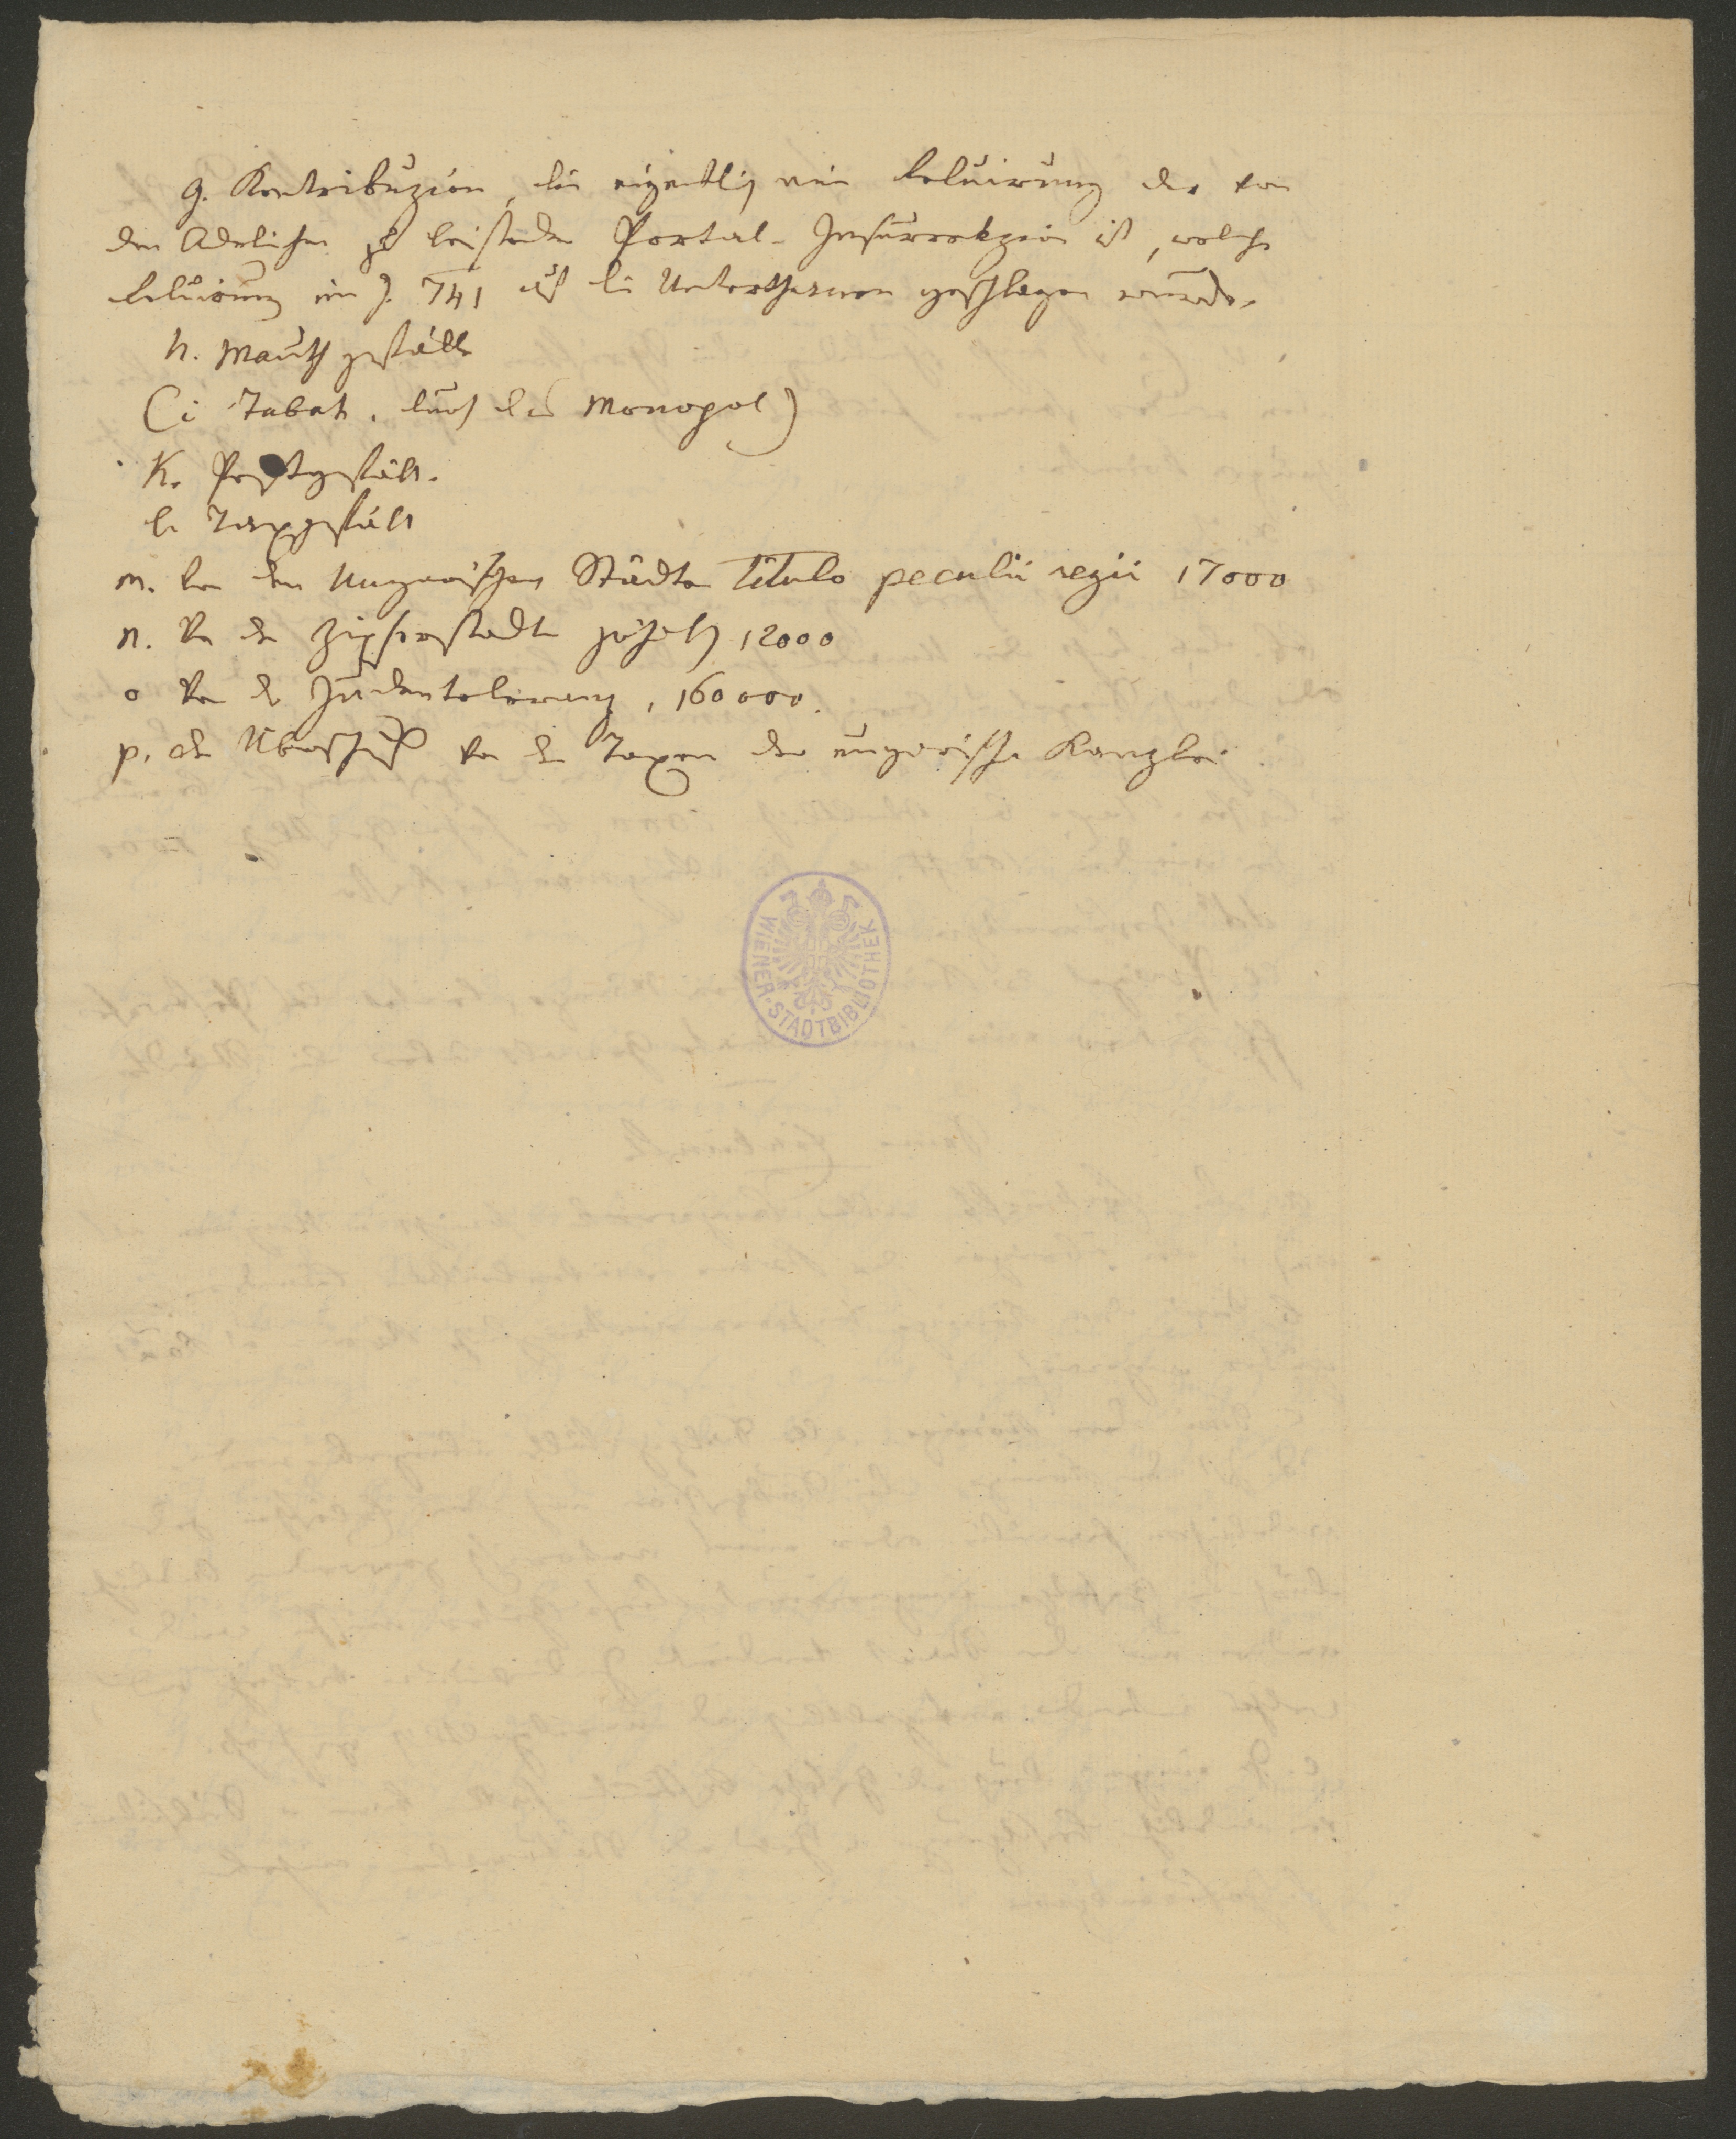 g. Kontribuzion, die eigentlich eine Reluirung der von
den Adelichen zu leistenden Portal-Insurrekzion ist, welche
Reluirung im J. 741 auf die Unterthanen geschlagen wurde.
h. Mauthgefälle
(i Tabak, durch das Monopol)
K. Postgefäll.
l. Taxgefäll
m. Von den Ungarischen Städten titulo peculii regii 17000
n. Von den Zipserstädten jährlich 12000
o Von der Judentoleranz, 160000.
p. Der Überschuß von den Taxen der ungarischen Kanzlei
WIENER·STADTBIBLIOTHEK